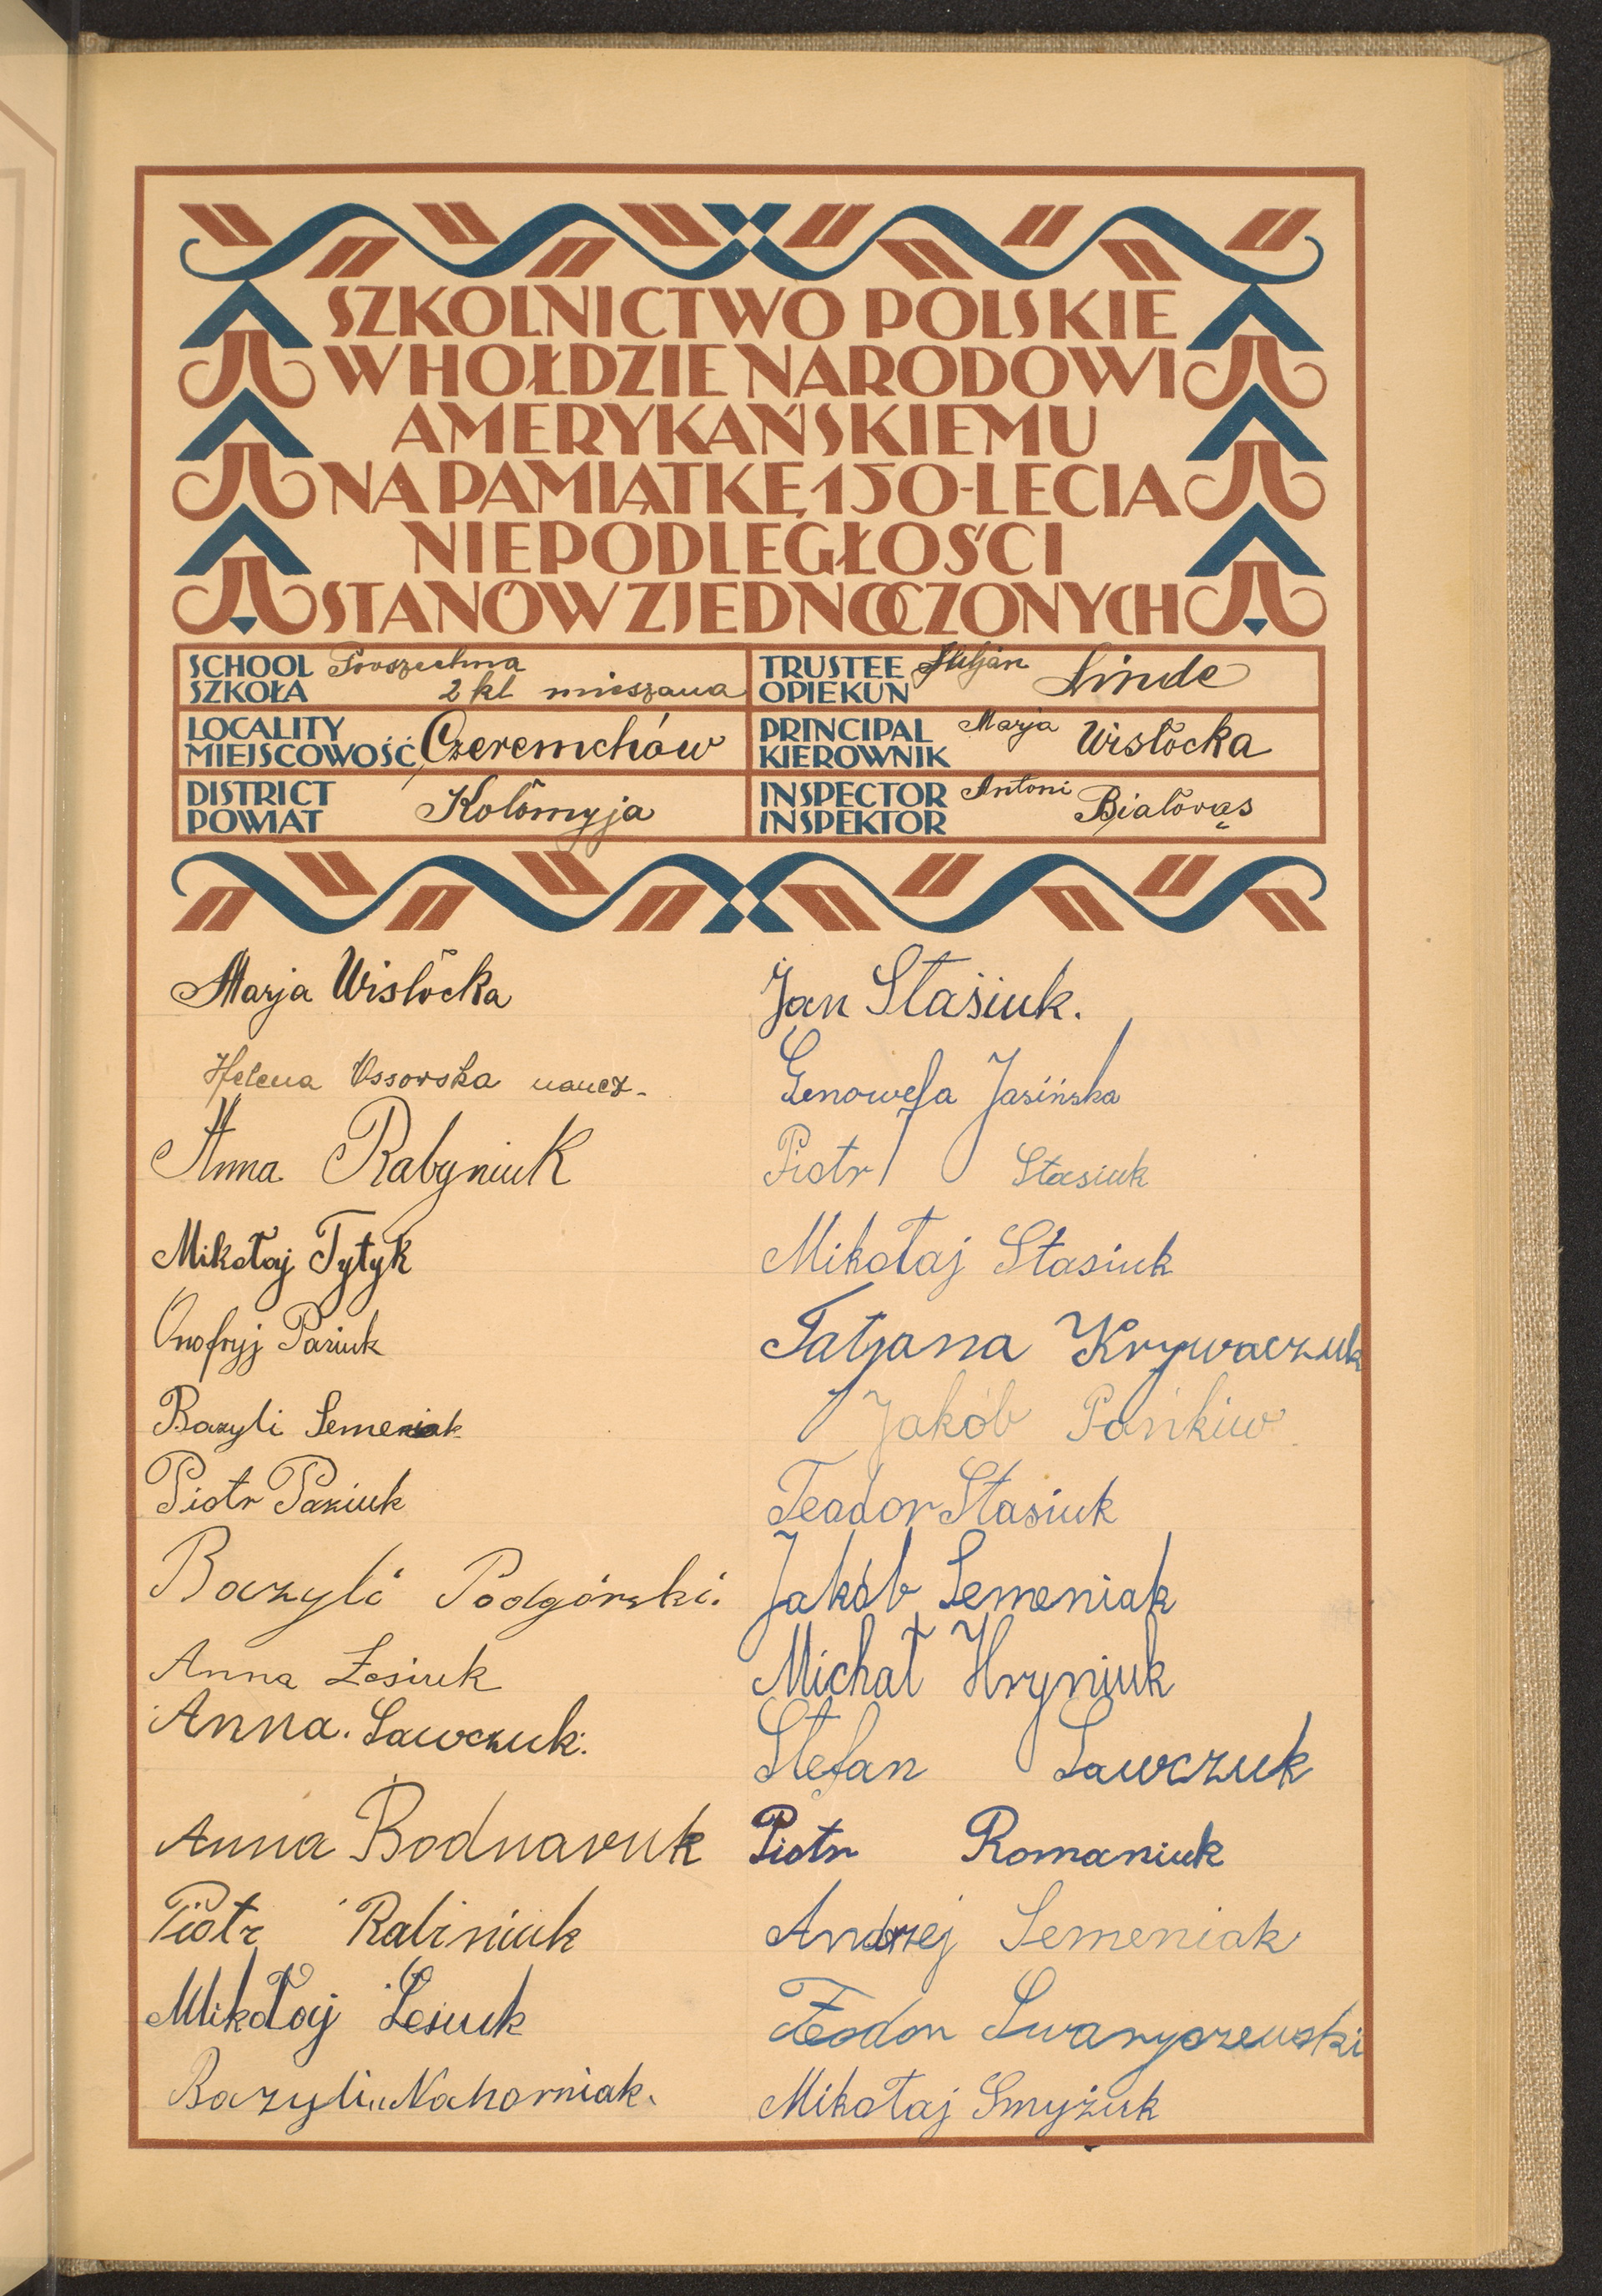 SZKOLNICTWO POLSKIE
W HOŁDZIE NARODOWI
AMERYKAŃSKIEMU
NA PAMIĄTKĘ 150-LECIA
NIEPODLEGŁOŚCI
STANÓW ZJEDNOCZONYCH
SCHOOL
SZKOŁA
Powszechna
2 kl mieszana
TRUSTEE
OPIEKUN
Linde
LOCALITY
MIEJSCOWOŚĆ
Czeremchów
PRINCIPAL
KIEROWNIK
Marja Wisłocka
DISTRICT
POWIAT
Kołomyja
INSPECTOR
INSPEKTOR
Antoni Białowąs
Marja Wisłocka
Helena Ossorska naucz.
Anna Rabyniuk
Mikołaj Tytyk
Onofryj Paziuk
Bazyli Semeniak
Piotr Paziuk
Bazyli Podgórski.
Anna Łesiuk
Anna. Sawczuk.
Anna Bodnaruk
Piotr Rabiniuk
Mikołaj Łesiuk
Bazyli Nahorniak.
Jan Stasiuk.
Genowefa Jasińska
Piotr Stasiuk
Mikołaj Stasiuk
Tatjana Krywaczuk
Jakób Pańkiw
Teodor Stasiuk
Jakób Semeniak
Michał Hryniuk
Stefan Sawczuk
Piotr Romaniuk
Andrzej Semeniak
Teodor Swaryczewski
Mikołaj Smyżuk